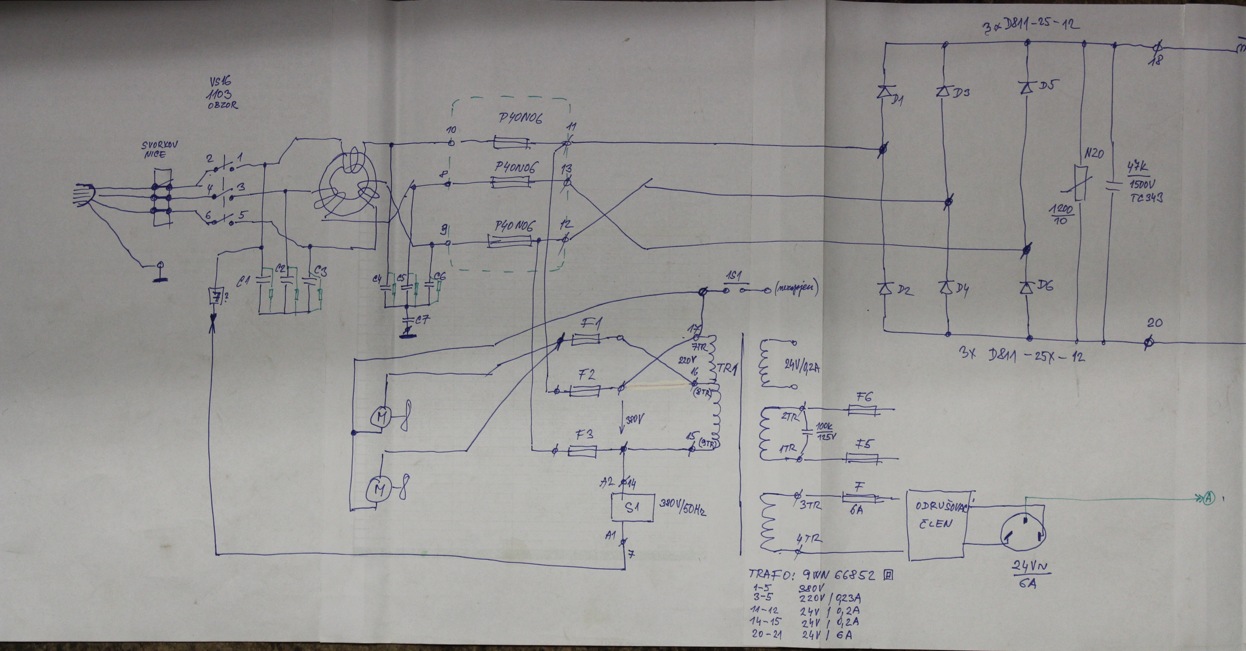 3x D811-25-12
18
VS16
1103
OBZOR
D1
D3
D5
SVORKOV
NICE
2
1
4
3
6
5
10
P40N06
11
8
P40N06
13
9
P40N06
12
N20
1200
10
47k
1500V
TC343
C1
C2
C3
C4
C5
C6
C7
1S1
(nezapojen)
D2
D4
D6
20
3x D811-25X-12
F1
17
7TR
220V
16
(8TR)
TR1
24V/0,2A
F2
380V
F3
15
(9TR)
2TR
F6
100k
125V
1TR
F5
M
M
A2
14
S1
380V/50Hz
A1
7
3TR
F
6A
4TR
ODRUŠOVACÍ
ČLEN
A
24V~
6A
TRAFO: 9WN 66852
1-5 380V
3-5 220V / 0,23A
11-12 24V / 0,2A
14-15 24V / 0,2A
20-21 24V / 6A